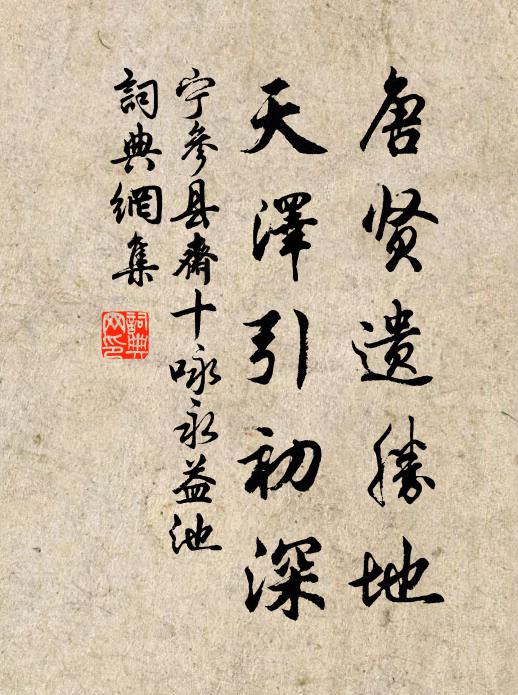 唐贤遗勝地
天澤引初深
宁參县齋十咏永益池
詞典網集
詞典网印